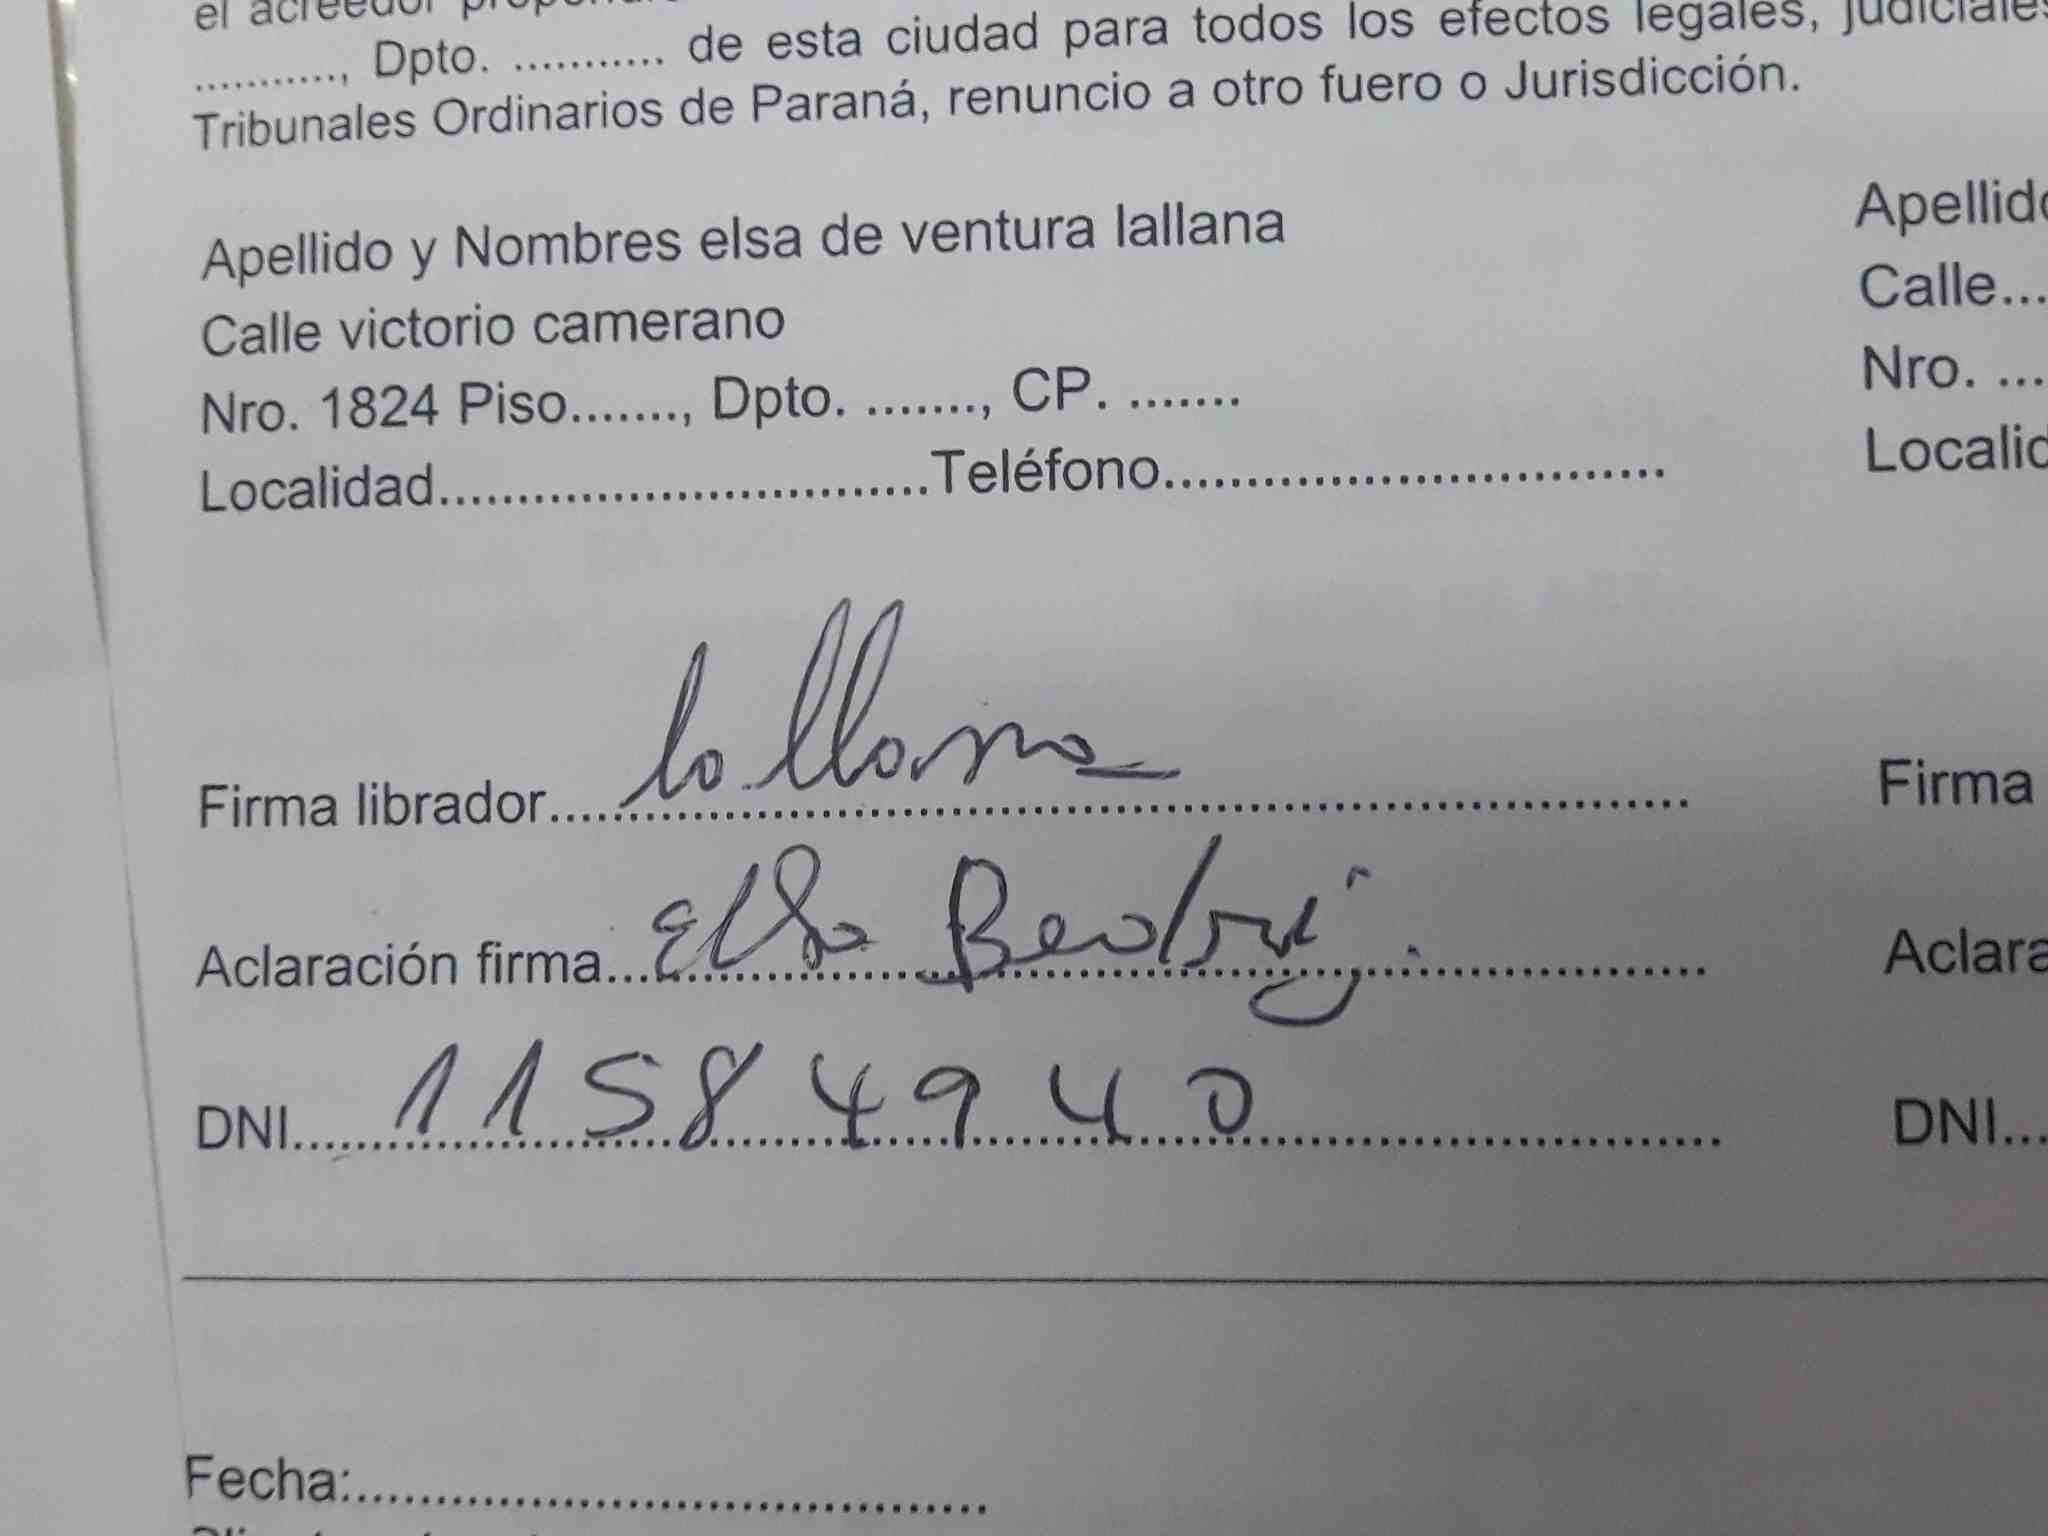 el acreedor
..........., Dpto. ........... de esta ciudad para todos los efectos legales, judiciales
Tribunales Ordinarios de Paraná, renuncio a otro fuero o Jurisdicción.
Apellido y Nombres elsa de ventura lallana
Calle victorio camerano
Nro. 1824 Piso......., Dpto. ......., CP. .......
Localidad..............................Teléfono..............................
Apellido
Calle...
Nro. ...
Localid
Firma librador.... lallana
Aclaración firma... Elsa Beatriz.
DNI.... 11584940
Firma
Aclara
DNI...
Fecha:.......................................